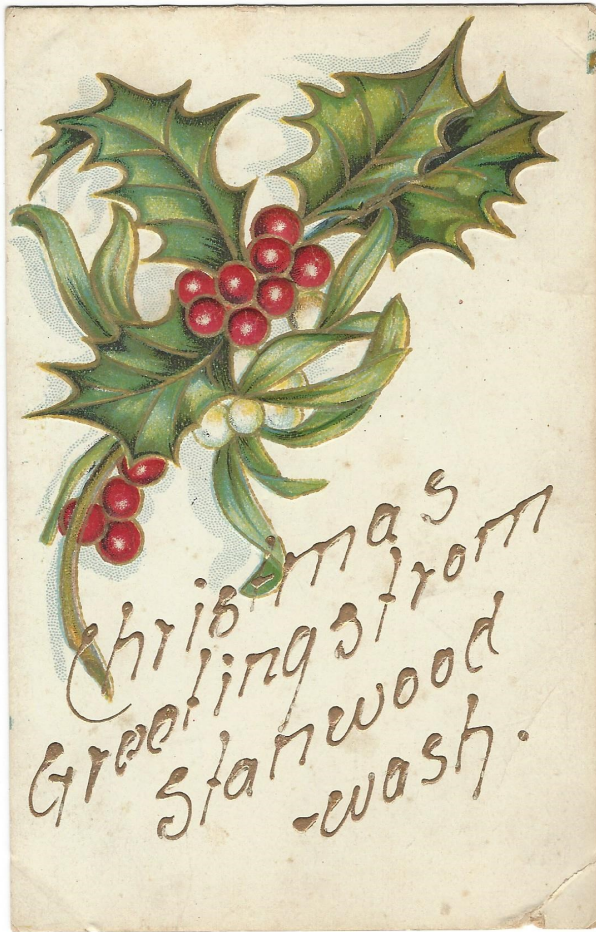 Christmas
Greetings from
Stanwood
-wash.